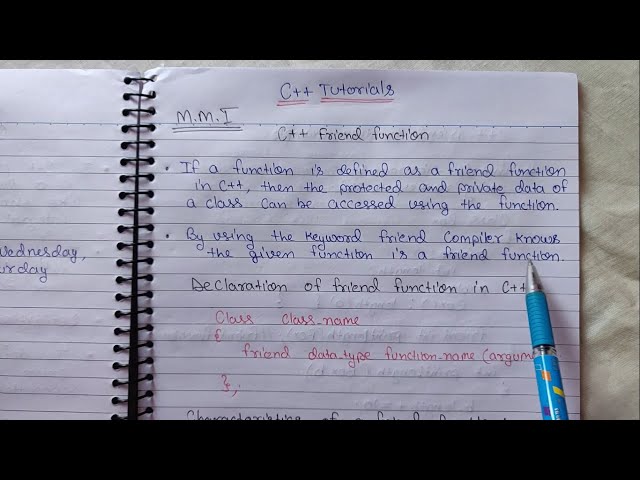 C++ Tutorials
M.M.I
C++ friend function
• If a function is defined as a friend function
in C++, then the protected and private data of
a class can be accessed using the function.
• By using the keyword friend compiler knows
the given function is a friend function.
Declaration of friend function in C++
Class class-name
{
friend data-type function-name (argume
};
Wednesday,
urday